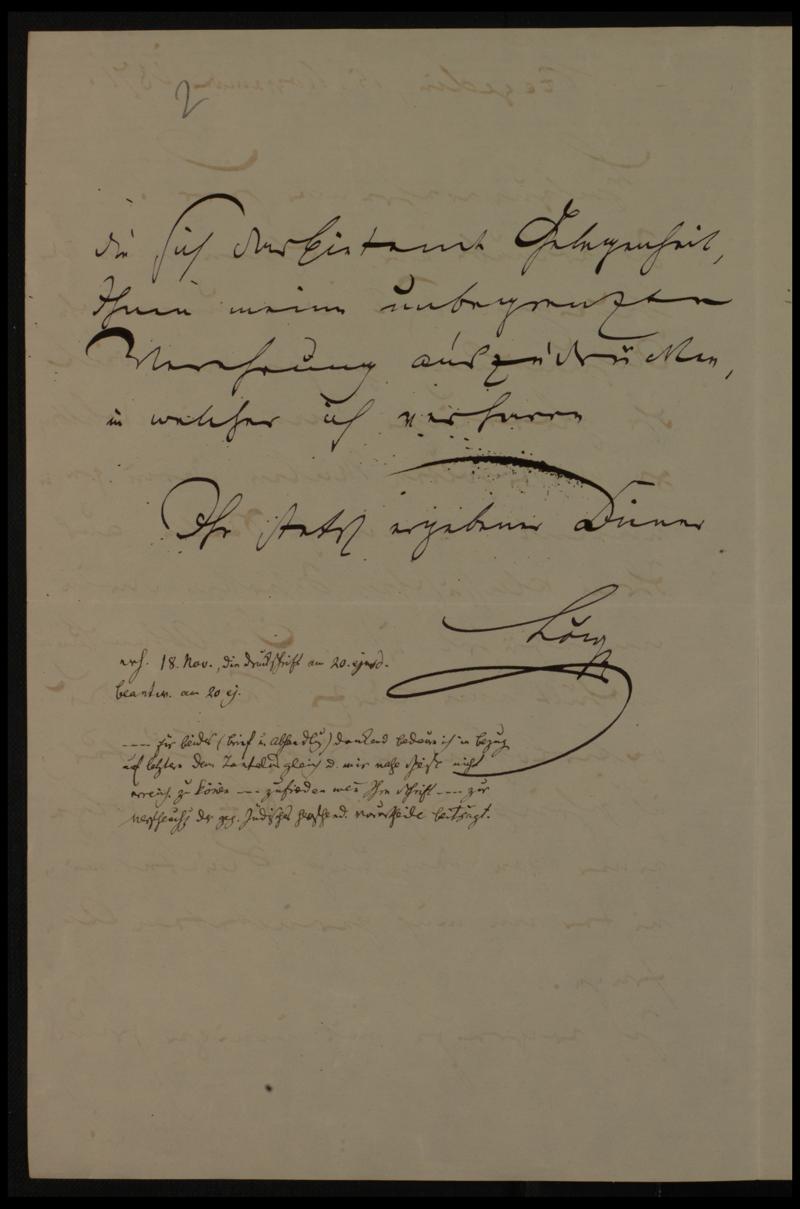 2
die sich darbietende Gelegenheit,
Ihnen meine unbegrenzte
Verehrung auszudrücken,
in welcher ich verharre
Ihr stets ergebener Diener
Löw
erh. 18. Nov., die Druckschrift am 20. ejusd.
beantw. am 20 ej.
---- für beides (Brief u. Abhandlg) dankend bedaure ich in bezug
auf letztere dem Tantalus gleich d. mir nahe Speise nicht
erreich. zu können ---- zufrieden wenn Ihre Schrift ---- zur
der geg. Judisches herrschend. Vorurtheile beiträgt.